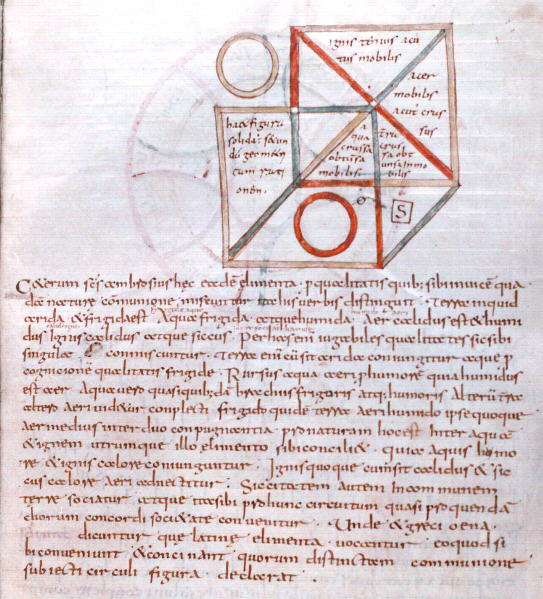 ignis tenuis acu
tus mobilis
aer
mobilis
acut cras
sus
haec figura
solida: secun
du geometri
cam ratio
onem.
a
qua
crassa
obtunsa
mobilis
terra
crassa obt
unsa inmo
bilis
S
Ceterum scs ambrosius hęc eadē elimenta. p qualitatis quib; sibi inuicē qua
dā naturae cōmunione miscentur talibus uerbis distinguit. Terra inquid
arida & frigida est. Aqua frigida atque humida. Aer calidus est & humi
dus ignis calidus atque siccus. Per has enī iugabiles qualitates sic sibi
singula commiscuntur. Terra enī cū sit arida coniungitur aquę p
cognicionē qualitatis frigide. Rursus aqua aeri p humorē quia humidus
est aer. Aqua uero quasi quib;dā brachiis frigoris atq; humoris
altero aeri uidetur conplecti frigido quidē terrā aeri humido ipse quoque
aer medius inter duo conpugnantia p naturam hoc est inter aquā
& ignem utrumque illo elimento sibi conciliat. quia aquis humo
re & ignis calore coniunguntur. Ignis quoque cum sit calidus & sic
cus calore aeri adnectitur. Siccitate autem in communem
terre sociatur atque ita sibi p hunc circuitum quasi p quendā
chorum concordi societate conueniunt. Unde & greci
dicuntur que latine elimenta uocantur. eo quod si
bi conueniunt & concinant quorum distinctam communione
subiecti circuli figura declarat.